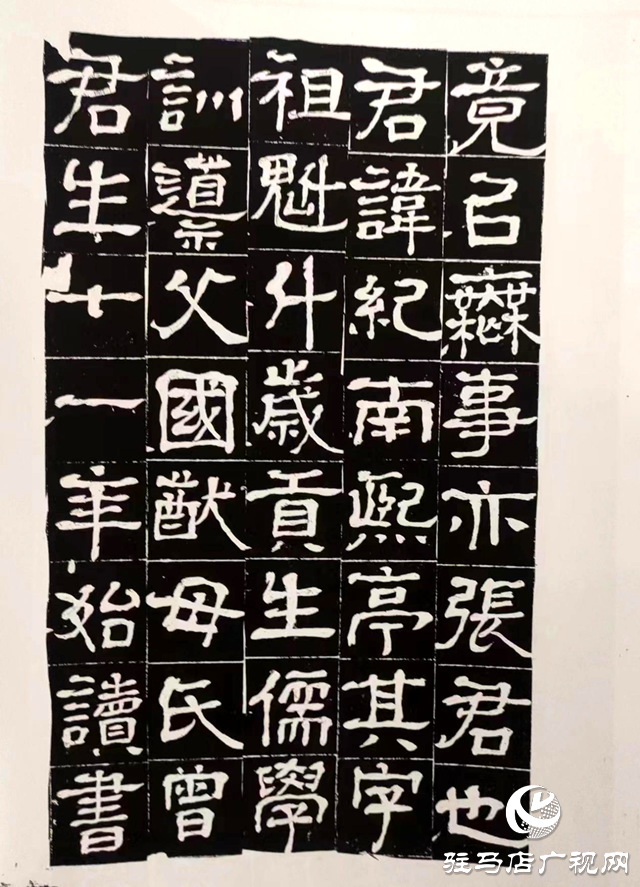 竟㠯事亦張君也
君諱紀南熙亭其字
祖魁斗歲貢生儒學
訓導父國猷母氏曾
君生十一年始讀書
驻马店广视网